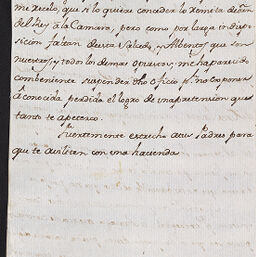 me rezelo, que si lo quiere conceder lo remita decⁿ
del Rey a la Camara, pero como por larga indispo
sicion faltan de esta Salzedo, y Albentos, que son
nuestros, y todos los demas opuestos, me ha parecido
combeniente suspender dho oficio pʳ. no exponer
à conocida perdida el logro de una pretension que
tanto te apetezco.
Fuertemente estrecho a tus Padres para
que te auxilien con una hacienda